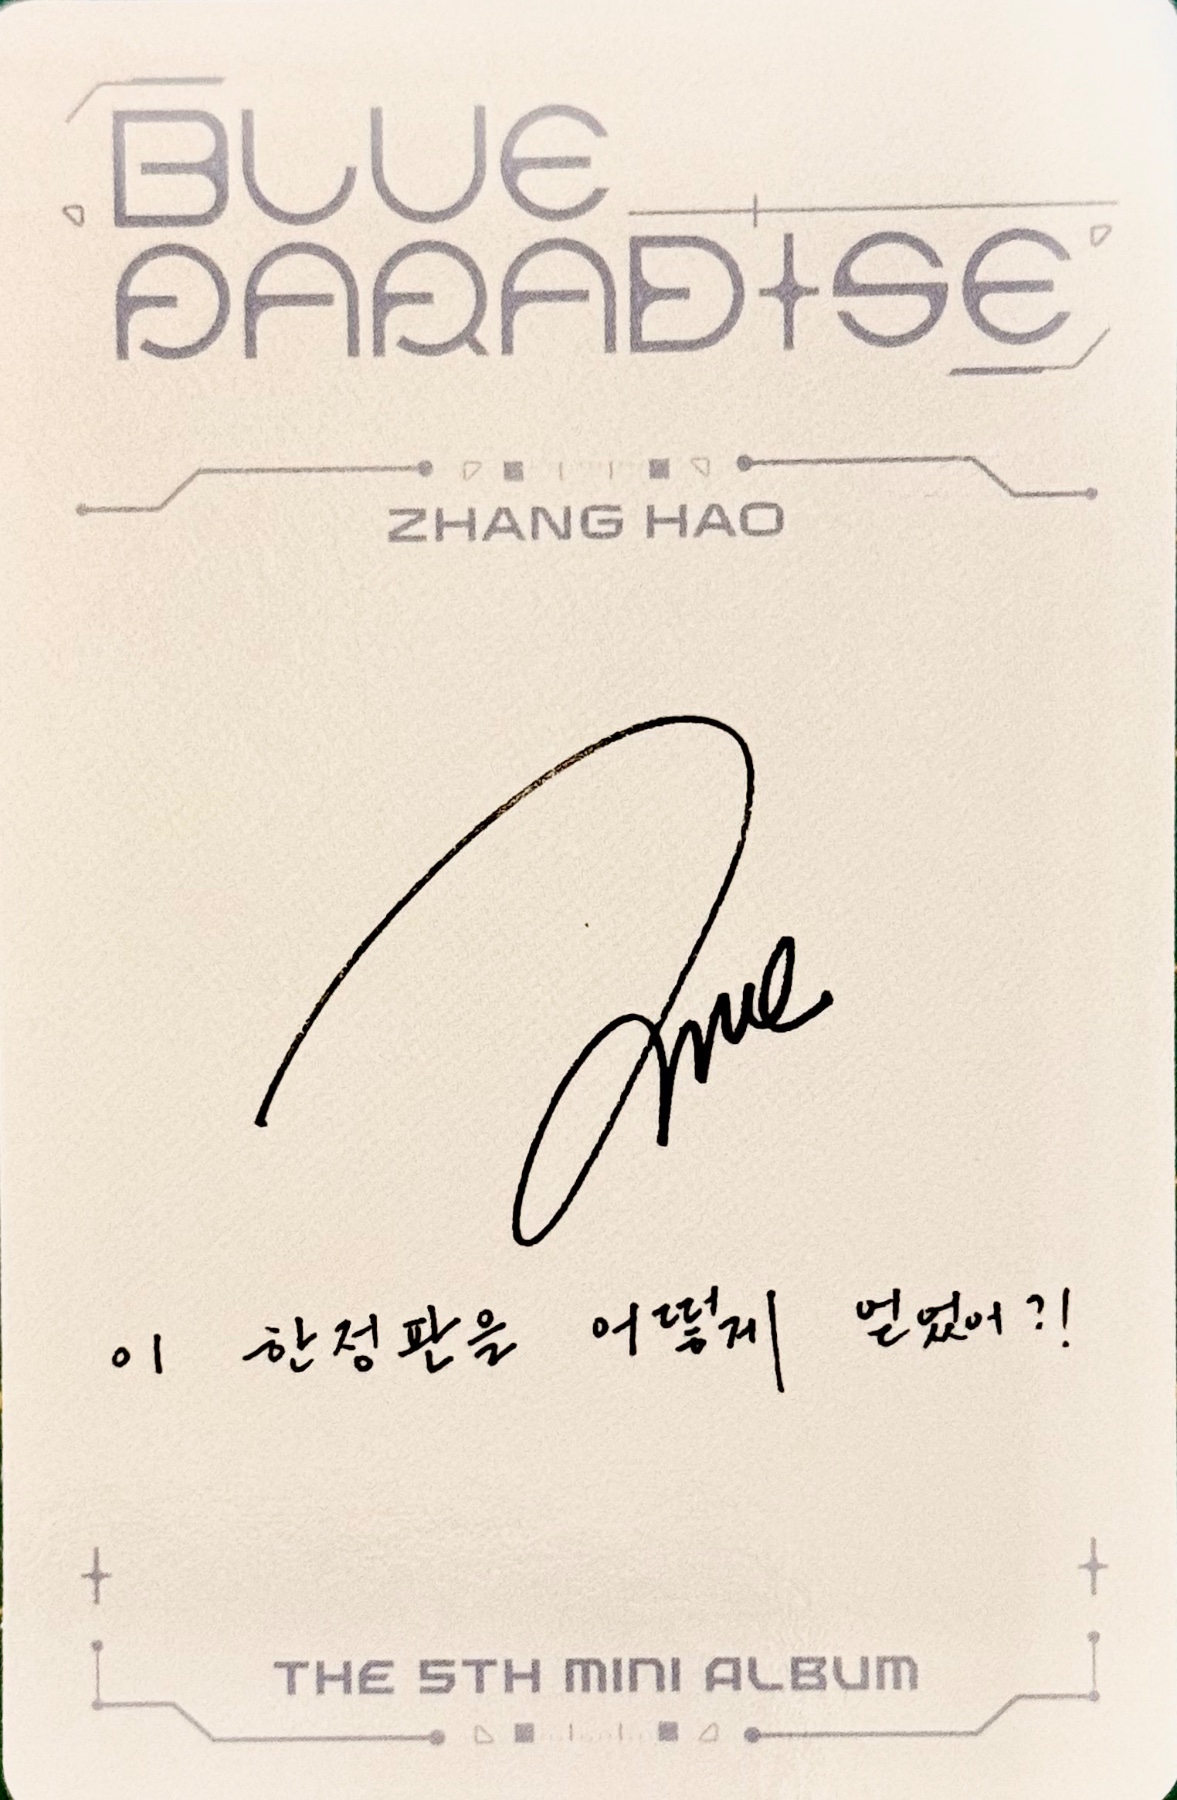 BLUE
PARADISE
ZHANG HAO
이 한정판을 어떻게 얻었어?!
THE 5TH MINI ALBUM